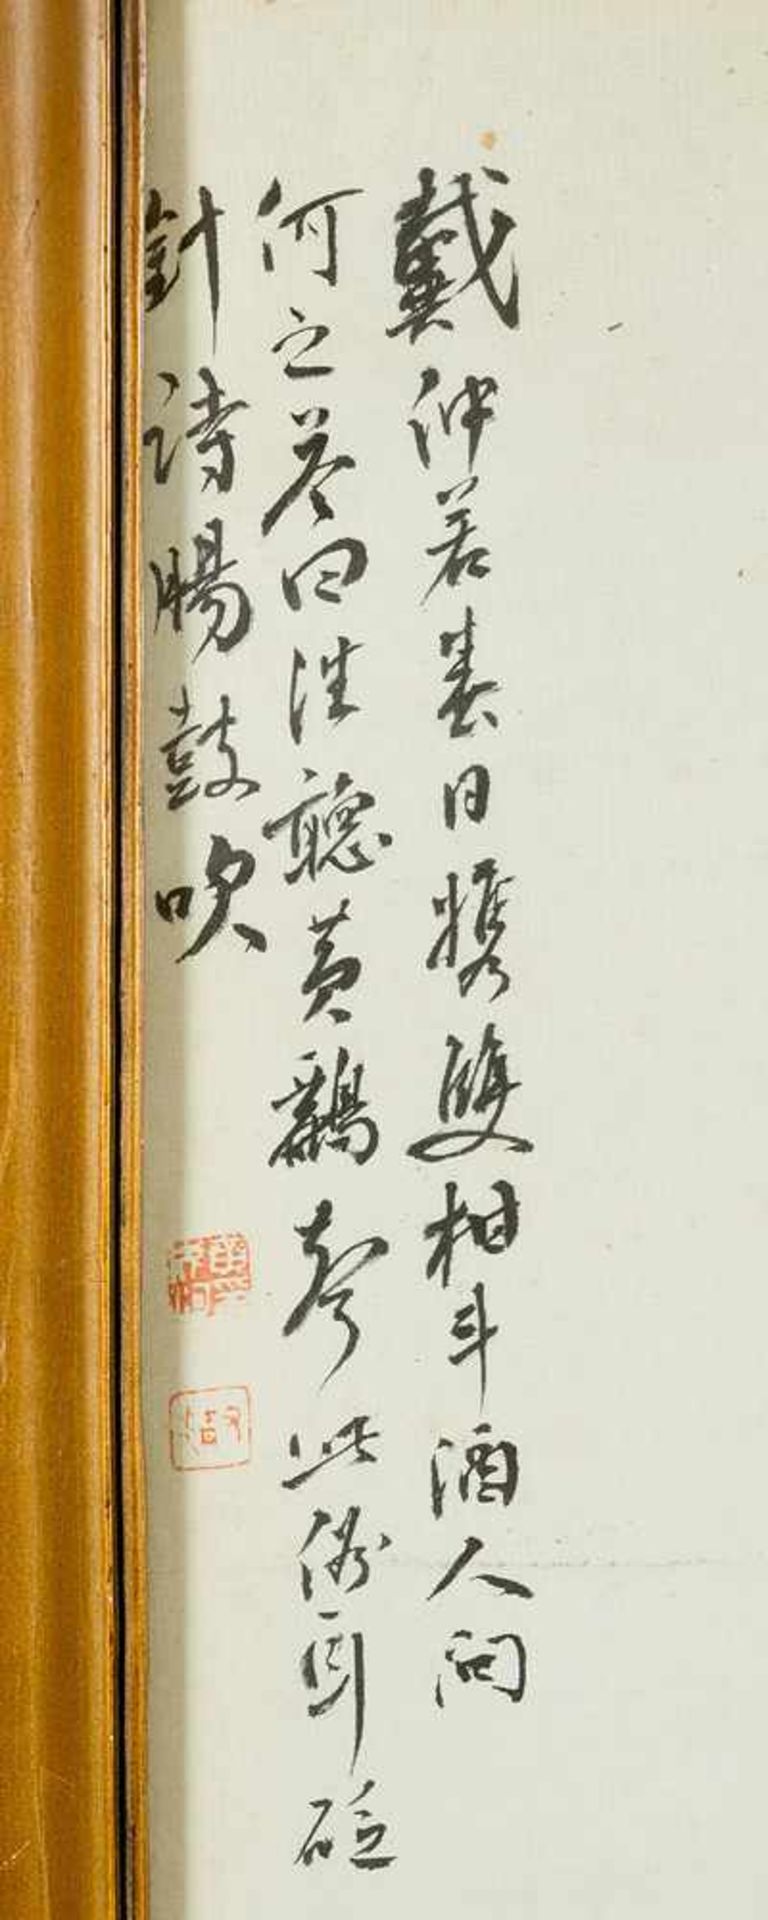 戴仲若春日携雙柑斗酒人問
何之答曰往聽黃鸝聲此俗耳砭
針詩腸鼓吹